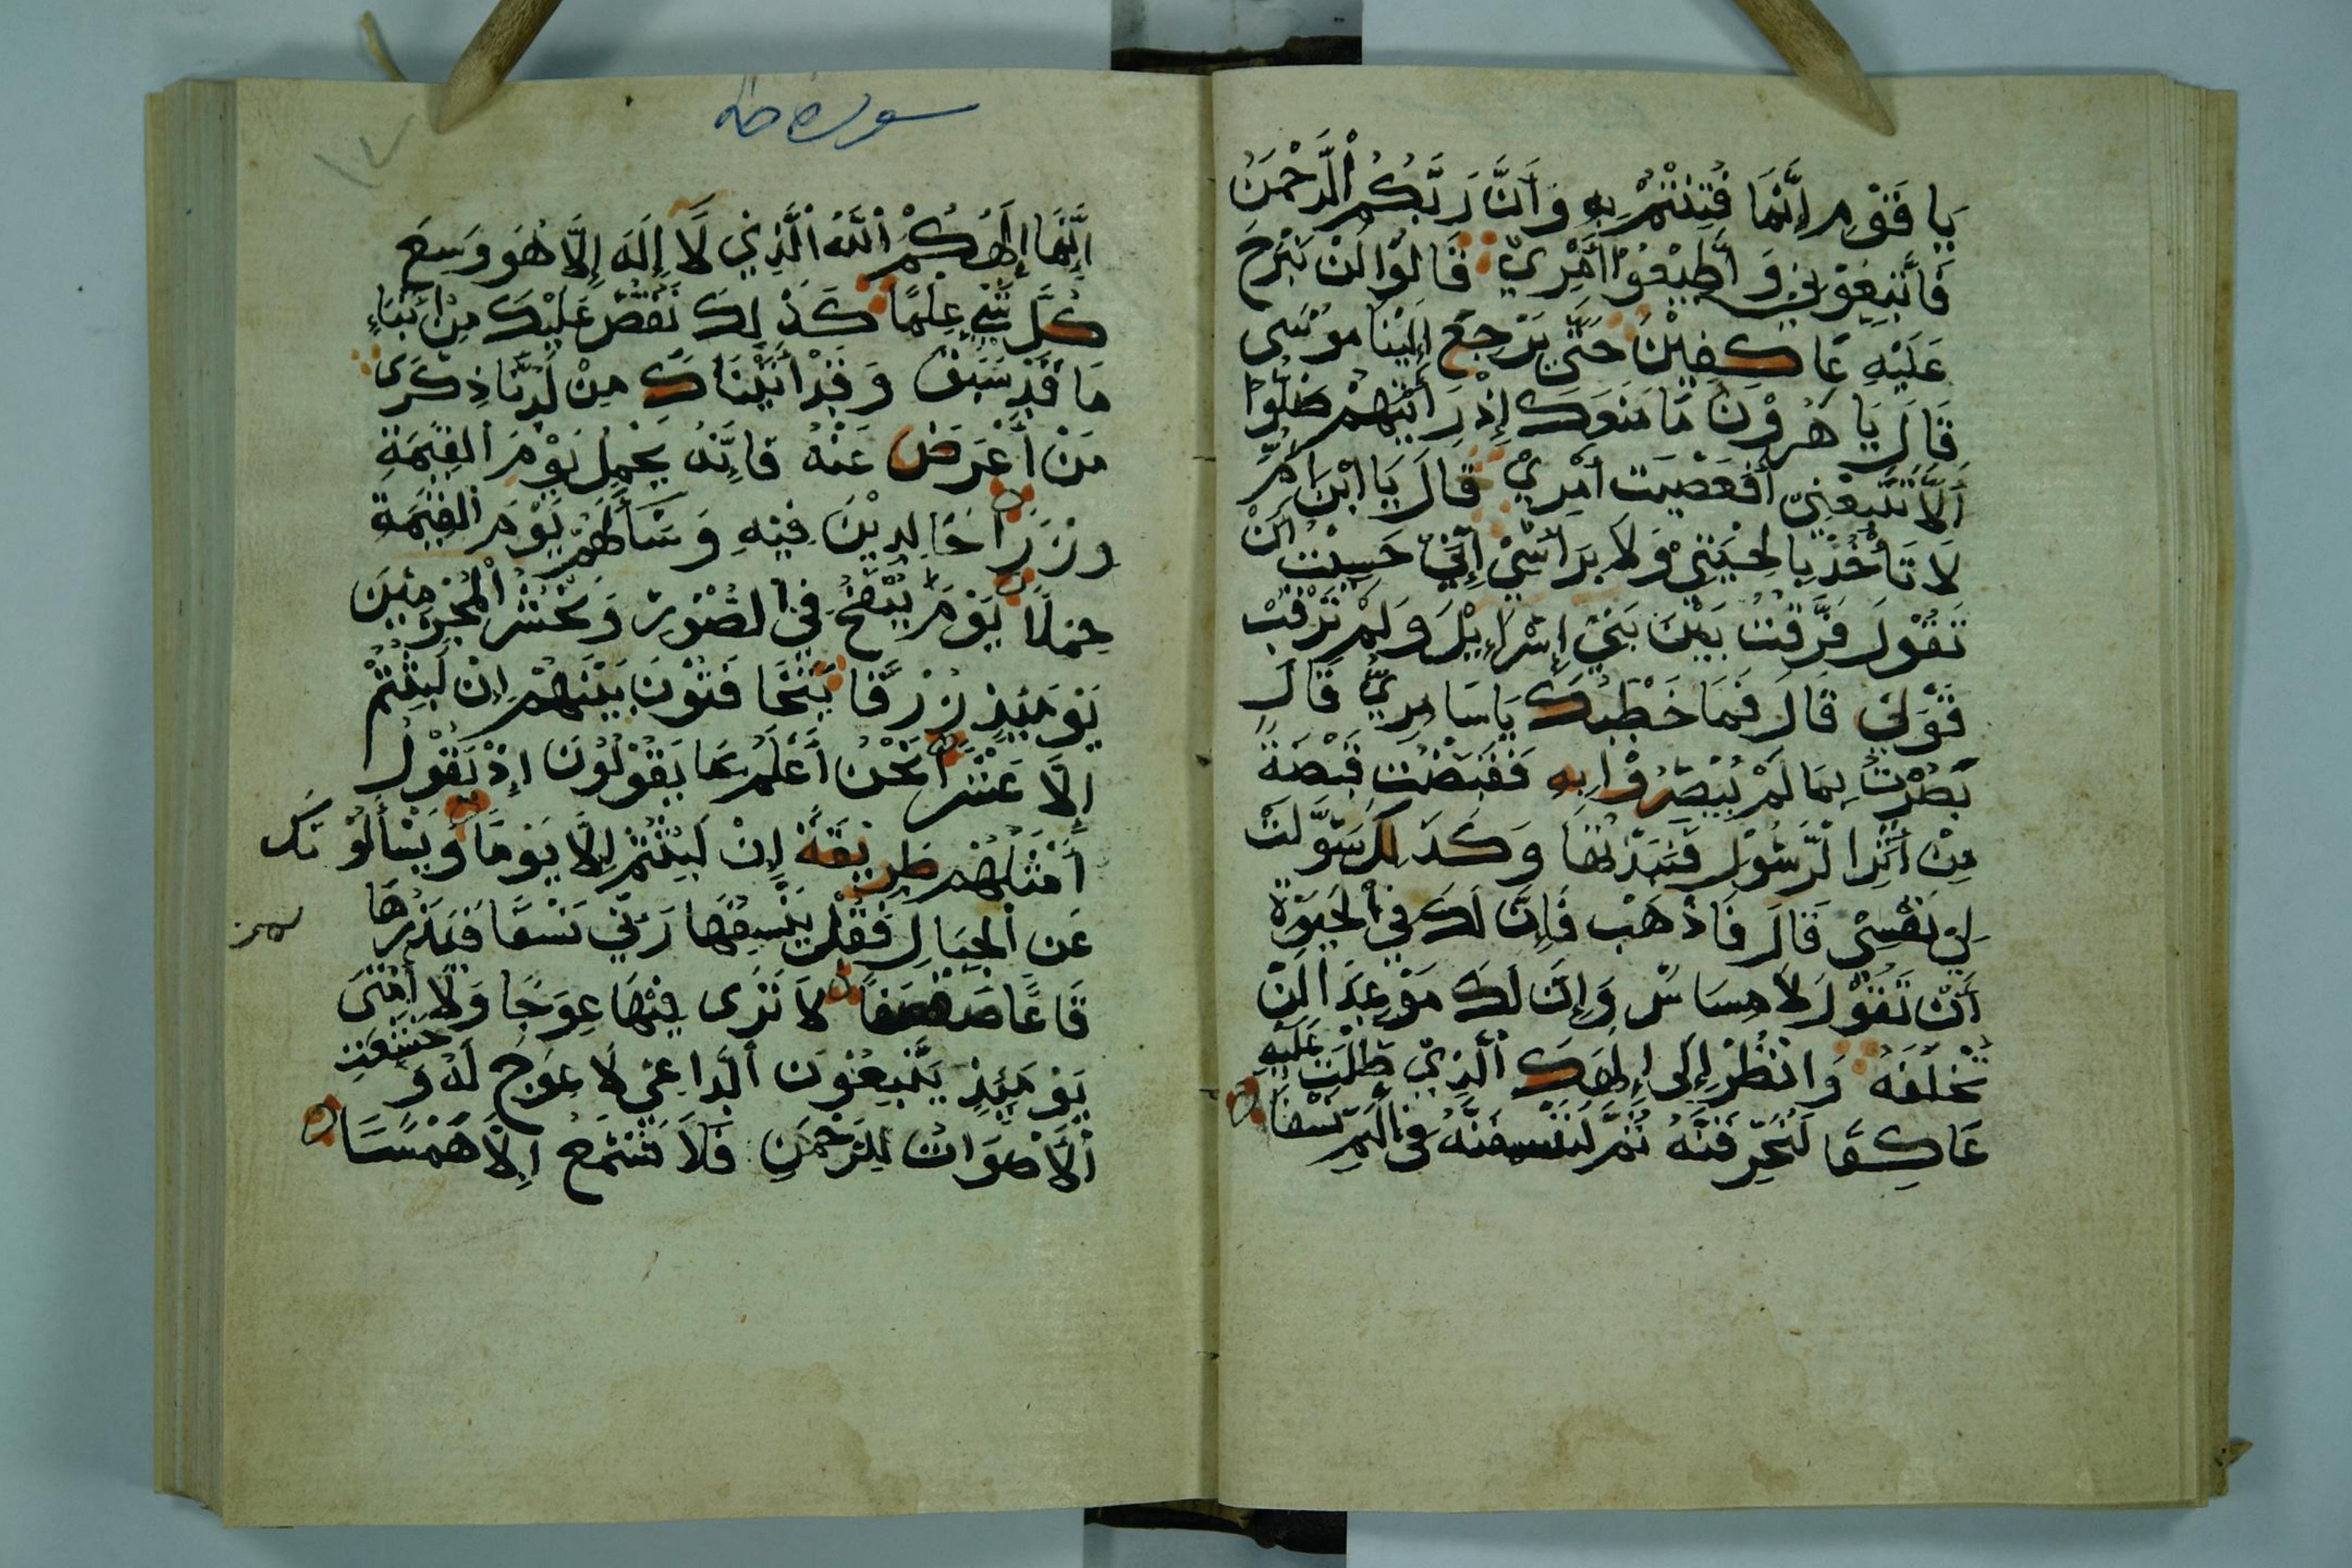 يَا قَوْمِ إِنَّمَا فُتِنْتُمْ بِهِ وَأَنَّ رَبَّكُمُ الرَّحْمَنُ
فَاتَّبِعُوْنِيْ وَأَطِيْعُوْا أَمْرِيْ قَالُوْا لَنْ نَبْرَحَ
عَلَيْهِ عَاكِفِيْنَ حَتَّى يَرْجِعَ إِلَيْنَا مُوْسَى
قَالَ يَا هَرُوْنُ مَا مَنَعَكَ إِذْ رَأَيْتَهُمْ ضَلُّوْا
أَلَّا تَتَّبِعَنِيْ أَفَعَصَيْتَ أَمْرِيْ قَالَ يَا ابْنَ أُمَّ
لَا تَأْخُذْ بِالِحْيَتِيْ وَلَا بِرَأْسِيْ إِنِّيْ حَسِبْتُ أَنْ
تَقُوْلَ فَرَّقْتَ بَيْنَ بَنِيْ إِسْرَاءِيْلَ وَلَمْ تَرْقُبْ
قَوْلِيْ قَالَ فَمَا خَطْبُكَ يَا سَامِرِيُّ قَالَ
بَصُرْتُ بِمَا لَمْ يُبْصِرُوْا بِهِ فَقَبَضْتُ قَبْضَةً
مِنْ أَثَرِ الرَّسُوْلِ فَنَبَذْتُهَا وَكَذَلِكَ سَوَّلَتْ
لِيْ نَفْسِيْ قَالَ فَاذْهَبْ فَإِنَّ لَكَ فِي الْحَيَوةِ
أَنْ تَقُوْلَ لَا مِسَاسَ وَإِنَّ لَكَ مَوْعِدًا لَنْ
تُخْلَفَهُ وَانْظُرْ إِلَى إِلَهِكَ الَّذِيْ ظَلْتَ عَلَيْهِ
عَاكِفًا لَنُحَرِّقَنَّهُ ثُمَّ لَنَنْسِفَنَّهُ فِي الْيَمِّ نَسْفًا
سوره طه
١٧
إِنَّمَا إِلَهُكُمُ اللَّهُ الَّذِيْ لَا إِلَهَ إِلَّا هُوَ وَسِعَ
كُلَّ شَيْءٍ عِلْمًا كَذَلِكَ نَقُصُّ عَلَيْكَ مِنْ أَنْبَاءِ
مَا قَدْ سَبَقَ وَقَدْ أَتَيْنَاكَ مِنْ لَدُنَّا ذِكْرَى
مَنْ أَعْرَضَ عَنْهُ فَإِنَّهُ يَحْمِلُ يَوْمَ الْقِيَمَةِ
وِزْرًا خَالِدِيْنَ فِيْهِ وَسَاءَ لَهُمْ يَوْمَ الْقِيَمَةِ
حِمْلًا يَوْمَ يُنْفَخُ فِي الصُّوْرِ وَنَحْشُرُ الْمُجْرِمِيْنَ
يَوْمَئِذٍ زُرْقًا يَتَخَافَتُوْنَ بَيْنَهُمْ إِنْ لَبِثْتُمْ
إِلَّا عَشْرًا نَحْنُ أَعْلَمُ بِمَا يَقُوْلُوْنَ إِذْ يَقُوْلُ
أَمْثَلُهُمْ طَرِيْقَةً إِنْ لَبِثْتُمْ إِلَّا يَوْمًا وَيَسْأَلُوْنَكَ
عَنِ الْجِبَالِ فَقُلْ يَنْسِفُهَا رَبِّيْ نَسْفًا فَيَذَرُهَا
قَاعًا صَفْصَفًا لَا تَرَى فِيْهَا عِوَجًا وَلَا أَمْتَى
يَوْمَئِذٍ يَتَّبِعُوْنَ الدَّاعِيَ لَا عِوَجَ لَهُ وَخَشَعَتِ
الْأَصْوَاتُ لِلرَّحْمَنِ فَلَا تَسْمَعُ إِلَّا هَمْسًا